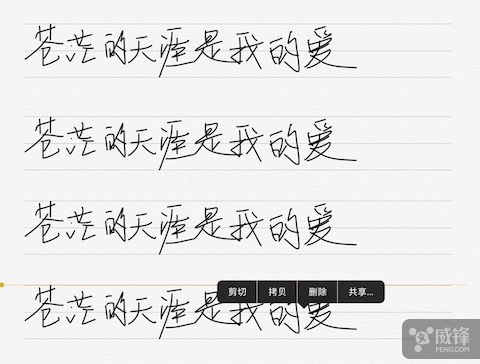 苍茫的天涯是我的爱
苍茫的天涯是我的爱
苍茫的天涯是我的爱
剪切 拷贝 删除 共享...
苍茫的天涯是我的爱
威锋
FENG.COM